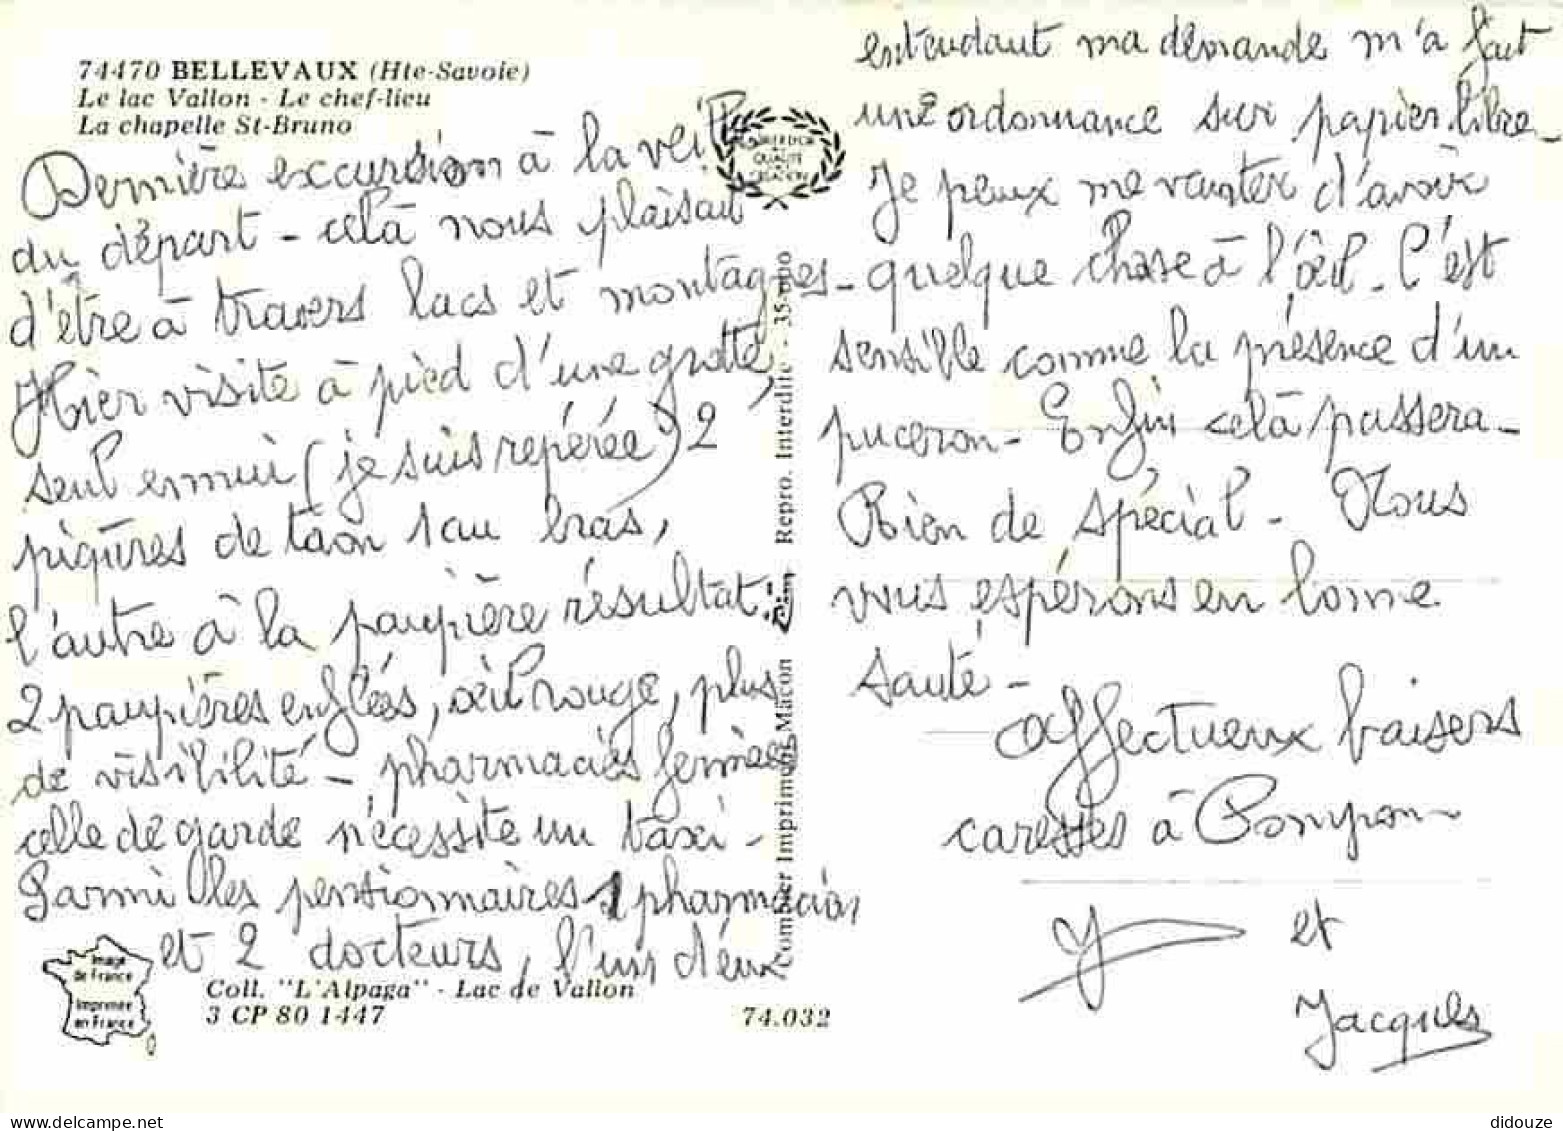 74470 BELLEVAUX (Hte-Savoie)
Le lac Vallon - Le chef-lieu
La chapelle St-Bruno
Dernière excursion à la veille
du départ - celà nous plaisait
d'être à travers lacs et montagnes -
Hier visite à pied d'une grotte,
seul ennui (je suis repérée) 2
piqûres de taon 1 au bras,
l'autre à la paupière résultat
2 paupières enflées, œil rouge, plus
de visibilité - pharmacies fermées
celle de garde nécessite un taxi -
Parmi les pensionnaires 1 pharmacien
et 2 docteurs, l'un d'eux
entendant ma demande m'a fait
une ordonnance sur papier libre -
Je peux me vanter d'avoir
quelque chose à l'œil. C'est
sensible comme la présence d'un
puceron - Enfin celà passera -
Rien de spécial - Nous
vous espérons en bonne
santé -
Affectueux baisers
caresses à Pompon
et
Jacques
QUALITE
Combier Imprimeur Mâcon Cim Repro. Interdite - 35-mo
Image
de France
Imprimée
en France
Coll. "L'Alpaga" - Lac de Vallon
3 CP 80 1447
74.032
delcampe.net
didouze